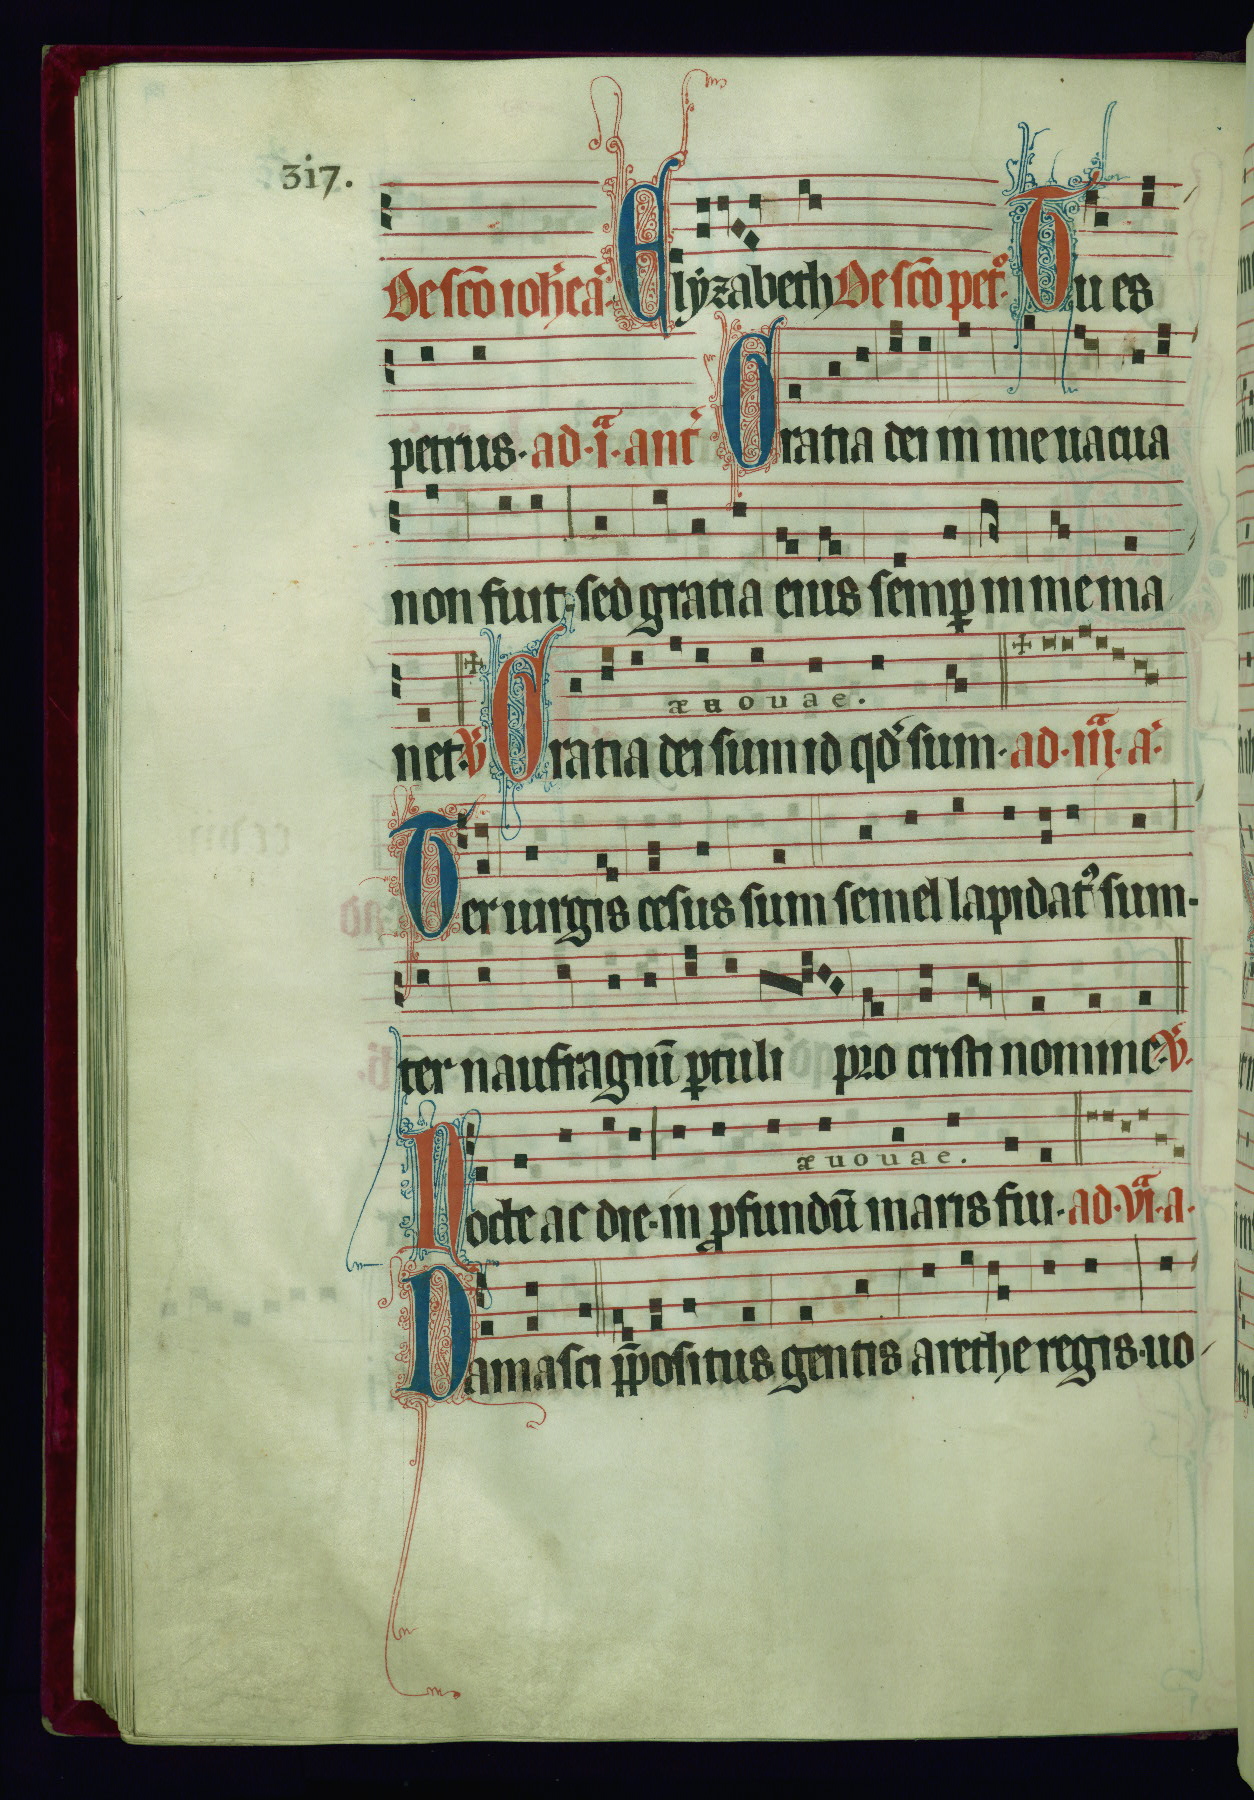 317.
De sc̄o ioh̄ ea᷒. Elyzabeth De sc̄o pet᷒. Tu es
petrus. ad .i.ᵃ ant᷒ Gratia dei in me uacua
non fuit. sed gratia eius semꝑ in me ma
æ u o u a e .
net. ℣ Gratia dei sum id qd᷒ sum. ad .iii.ᵃ a᷒.
Ter uirgis cesus sum semel lapidat᷒ sum.
ter naufragiū ꝑtuli pro cristi nomine. ℣.
æ u o u a e .
Nocte ac die. in ꝓfundū maris fui. ad .vi.ᵃ a.
Damasci p̄positus gentis arethe regis. uo